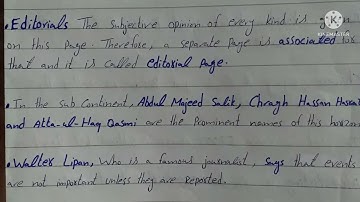 • Editorials The subjective opinion of every kind is
on this page. Therefore, a separate page is associated for
that and it is called editorial page.
• In the Sub Continent, Abdul Majeed Salik, Chragh Hassan Hasrat
and Atta-ul-Haq Qasmi are the Prominent names of this horizon
• Walter Lipan, Who is a famous journalist, says that events
are not important unless they are Reported.
KINEMASTER